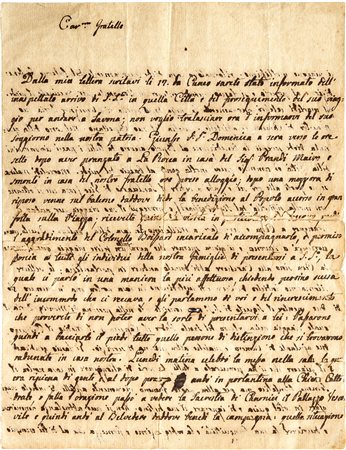 Car.mo fratello
Dalla mia lettera scritavi li 17. da Cuneo sarete stato informato dell'
inaspettato arrivo di S. S.tà in quella Città e del proseguimento del suo viag-
gio per andare a Savona; non voglio tralasciare ora d'informarvi del suo
soggiorno nella nostra patria. Giunse S. S. Domenica a sera verso le ore
sette dopo aver pranzato a La Rocca in casa del Sig.r Brandi Maire, e
smontò in casa del nostro fratello ove prese alloggio; dopo una mezz'ora di
riposo venne sul balcone dove diede la benedizione al Popolo accorso in gran
folla sulla Piazza, ricevette
aggradimento del Colonello incaricato di accompagnarlo, e permise
poscia a tutti gli individui della nostra famiglia di presentarsi a S. S., la
quale ci parlò in una maniera la più affettuosa, chiedendo persino scusa
dell'incommodo che ci recava; gli parlammo di voi e del rincrescimento
che provereste di non poter aver la sorte di presentarvi a lui. Passarono
quindi a bacciargli il piede tutte quelle persone di distinzione che si trovavano
radunate in casa nostra. Lunedì mattina celebrò la messa nella sala la quale
era ripiena di gente, e dopo pranzo andò in portantina alla Chiesa Catte-
drale, e fatta l'orazione passò a vedere la Sacristia de' Canonici, il Pallazzo Vesco-
vile e quindi al Belvedere dove vedendo la campagna: quella situazione